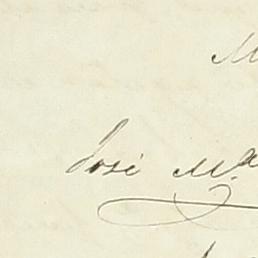 M
José M.ª